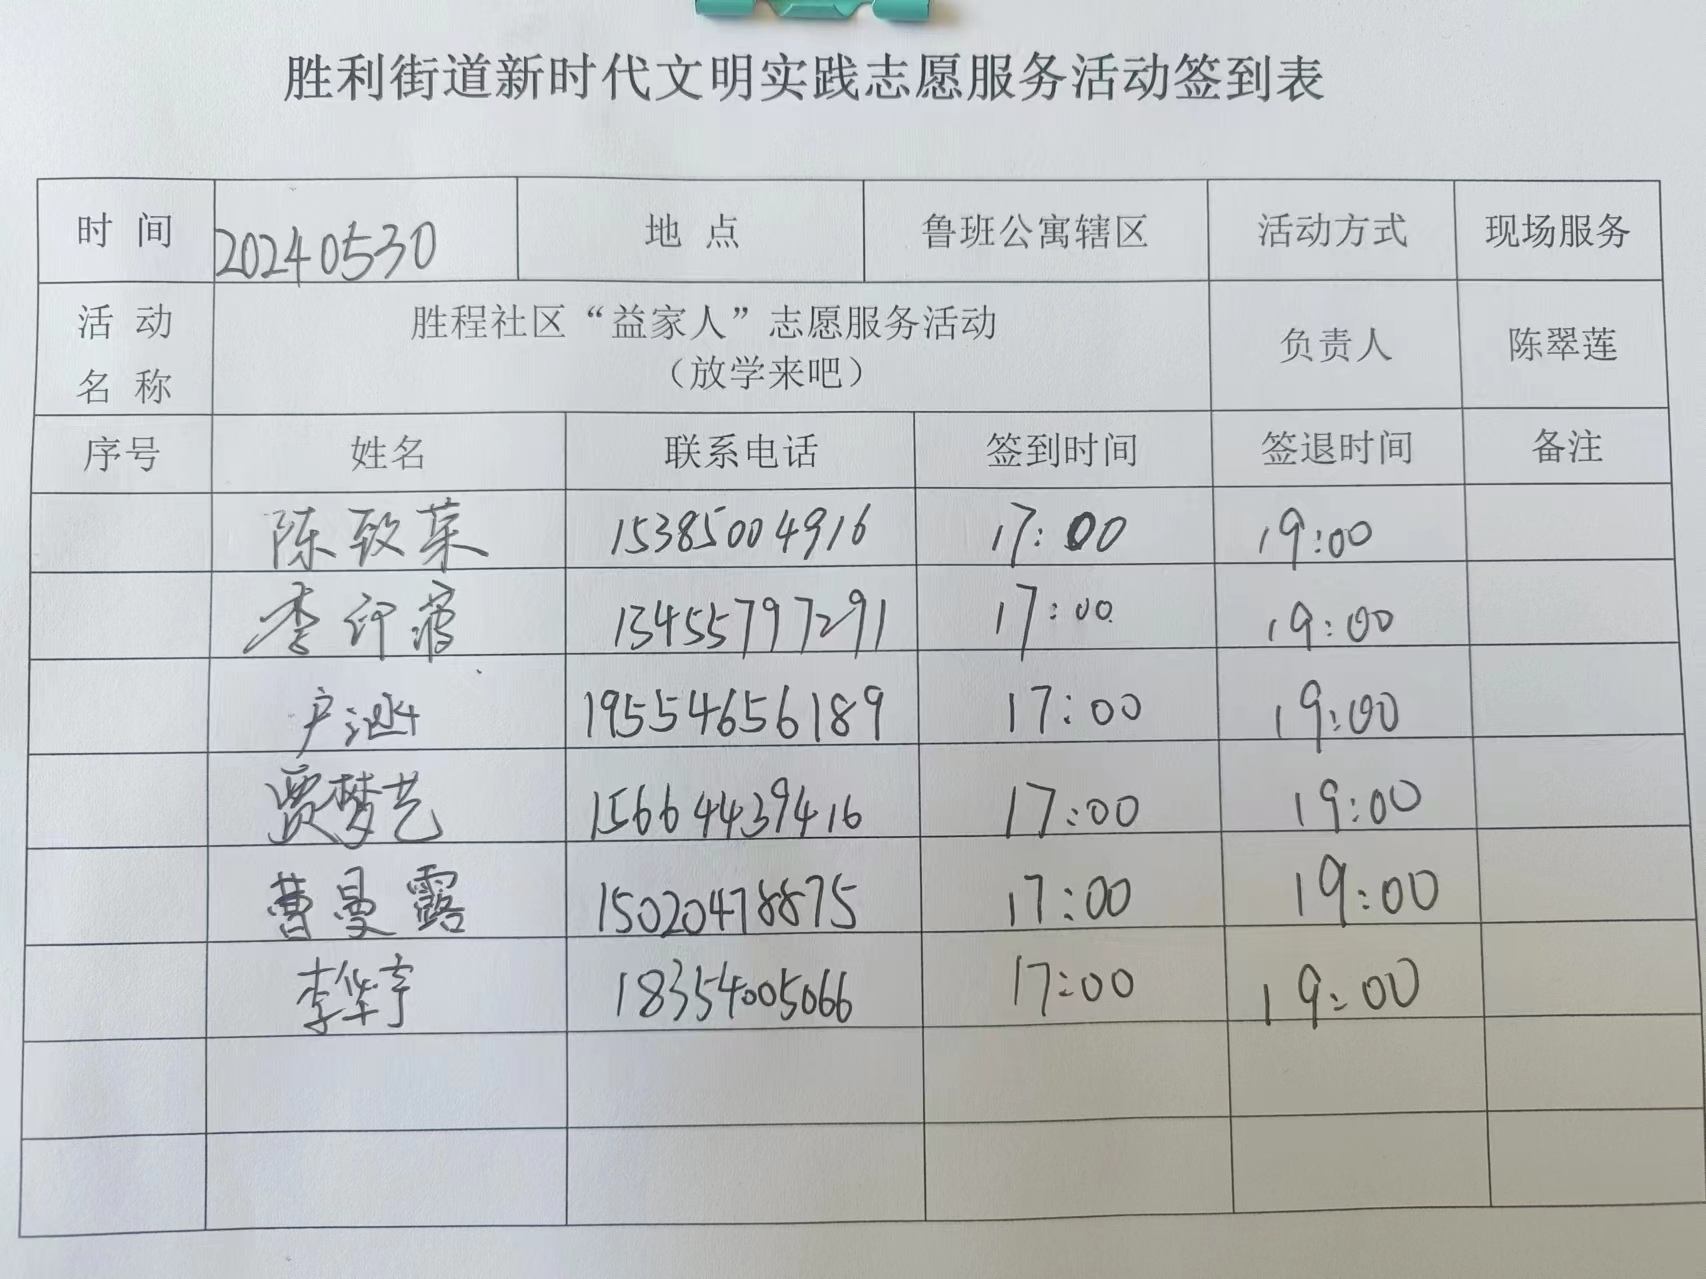 胜利街道新时代文明实践志愿服务活动签到表
时 间 20240530 地 点 鲁班公寓辖区 活动方式 现场服务
活 动 名 称 胜程社区“益家人”志愿服务活动 负责人 陈翠莲
（放学来吧）
序号 姓名 联系电话 签到时间 签退时间 备注
陈致荣 15385004916 17:00 19:00
李 13455797291 17:00 19:00
19554656189 17:00 19:00
贾梦艺 15664439416 17:00 19:00
曹曼露 15020478875 17:00 19:00
李华宇 18354005066 17:00 19:00